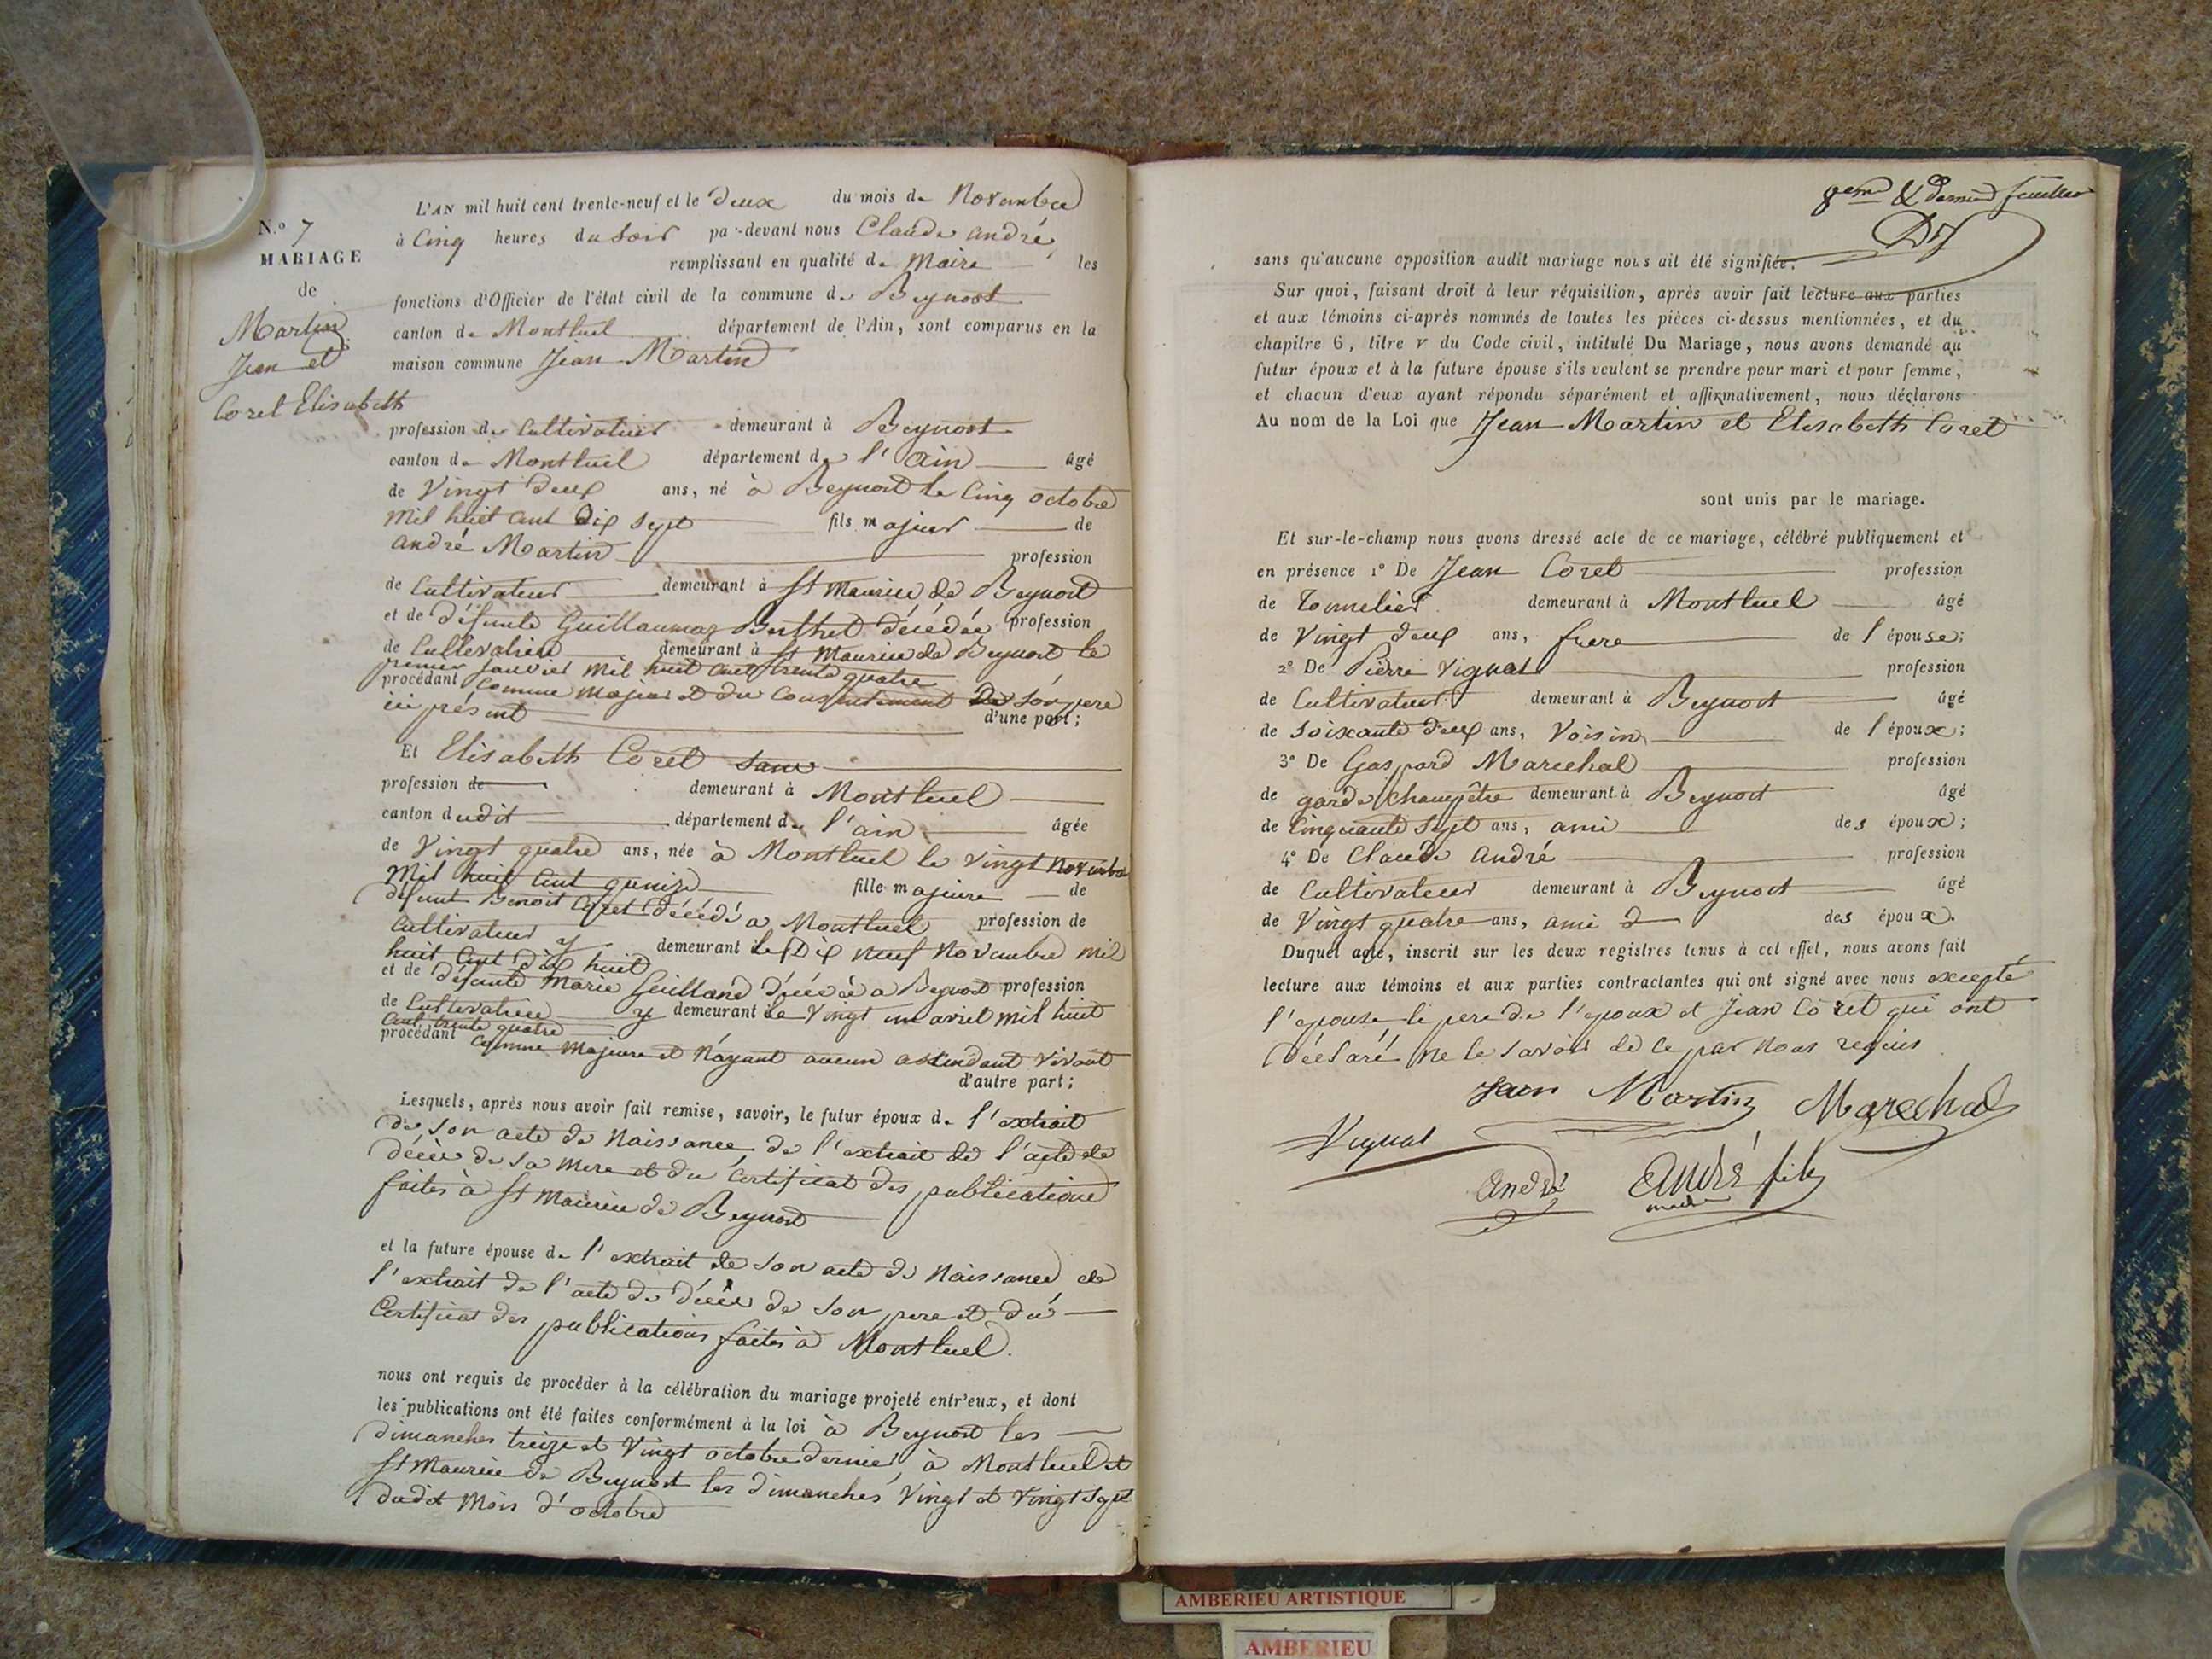 N.° 7
MARIAGE
de
Martin
Jean et
Coret Elisabeth
L'AN mil huit cent trente-neuf et le deux du mois de Novembre
à Cinq heures du soir par-devant nous Claude André,
remplissant en qualité de Maire les
fonctions d'Officier de l'état civil de la commune de Beynost
canton de Montluel département de l'Ain, sont comparus en la
maison commune Jean Martin
profession de Cultivateur demeurant à Beynost
canton de Montluel département de l'Ain âgé
de Vingt deux ans, né à Beynost le Cinq octobre
mil huit cent dix sept fils majeur de
André Martin profession
de Cultivateur demeurant à St Maurice de Beynost
et de défunte Guillaumaz Berthet décédée profession
de Cultivatrice demeurant à St Maurice de Beynost le
premier Janvier mil huit cent trente quatre
procédant Comme majeur et du Consentement de son pere
ici présent d'une part;
Et Elisabeth Coret sans
profession de demeurant à Montluel
canton dudit département de l'ain âgée
de Vingt quatre ans, née à Montluel le vingt Novembre
Mil huit Cent quinze fille majeure de
défunt Benoit Coret décédé a Montluel profession de
Cultivateur y demeurant le Dix neuf Novembre mil
huit Cent dix huit
et de défunte Marie Guilland décédée a Beynost profession
de Cultivatrice y demeurant le vingt un avril mil huit
Cent trente quatre
procédant Comme Majeure et n'ayant aucun ascendant vivant
d'autre part;
Lesquels, après nous avoir fait remise, savoir, le futur époux de l'extrait
de son acte de Naissance, de l'extrait de l'acte de
décès de sa mere et du Certificat des publications
faites à St Maurice de Beynost
et la future épouse de l'extrait de son acte de Naissance de
l'extrait de l'acte de décès de son pere et du
Certificat des publications faites à Montluel.
nous ont requis de procéder à la célébration du mariage projeté entr'eux, et dont
les publications ont été faites conformément à la loi à Beynost les
dimanches treize et Vingt octobre dernier, à Montluel et
St Maurice de Beynost les dimanches Vingt et Vingt sept
dudit Mois d'octobre
8eme & dernier feuillet
sans qu'aucune opposition audit mariage nous ait été signifiée.
Sur quoi, faisant droit à leur réquisition, après avoir fait lecture aux parties
et aux témoins ci-après nommés de toutes les pièces ci-dessus mentionnées, et du
chapitre 6, titre v du Code civil, intitulé Du Mariage, nous avons demandé au
futur époux et à la future épouse s'ils veulent se prendre pour mari et pour femme,
et chacun d'eux ayant répondu séparément et affirmativement, nous déclarons
Au nom de la Loi que Jean Martin et Elisabeth Coret
sont unis par le mariage.
Et sur-le-champ nous avons dressé acte de ce mariage, célébré publiquement et
en présence 1° De Jean Coret profession
de Tonnelier demeurant à Montluel âgé
de Vingt deux ans, frere de l'épouse;
2° De Pierre Vignat profession
de Cultivateur demeurant à Beynost âgé
de soixante deux ans, Voisin de l'époux;
3° De Gaspard Marechal profession
de garde Champêtre demeurant à Beynost âgé
de Cinquante sept ans, ami des époux;
4° De Claude André profession
de Cultivateur demeurant à Beynost âgé
de Vingt quatre ans, ami des époux.
Duquel acte, inscrit sur les deux registres tenus à cet effet, nous avons fait
lecture aux témoins et aux parties contractantes qui ont signé avec nous excepté
l'epouse le pere de l'epoux et Jean Coret qui ont
déclaré ne le savoir de ce par nous requis
Jean Martin Marechal
Vignat
André André fils
AMBERIEU ARTISTIQUE
AMBERIEU